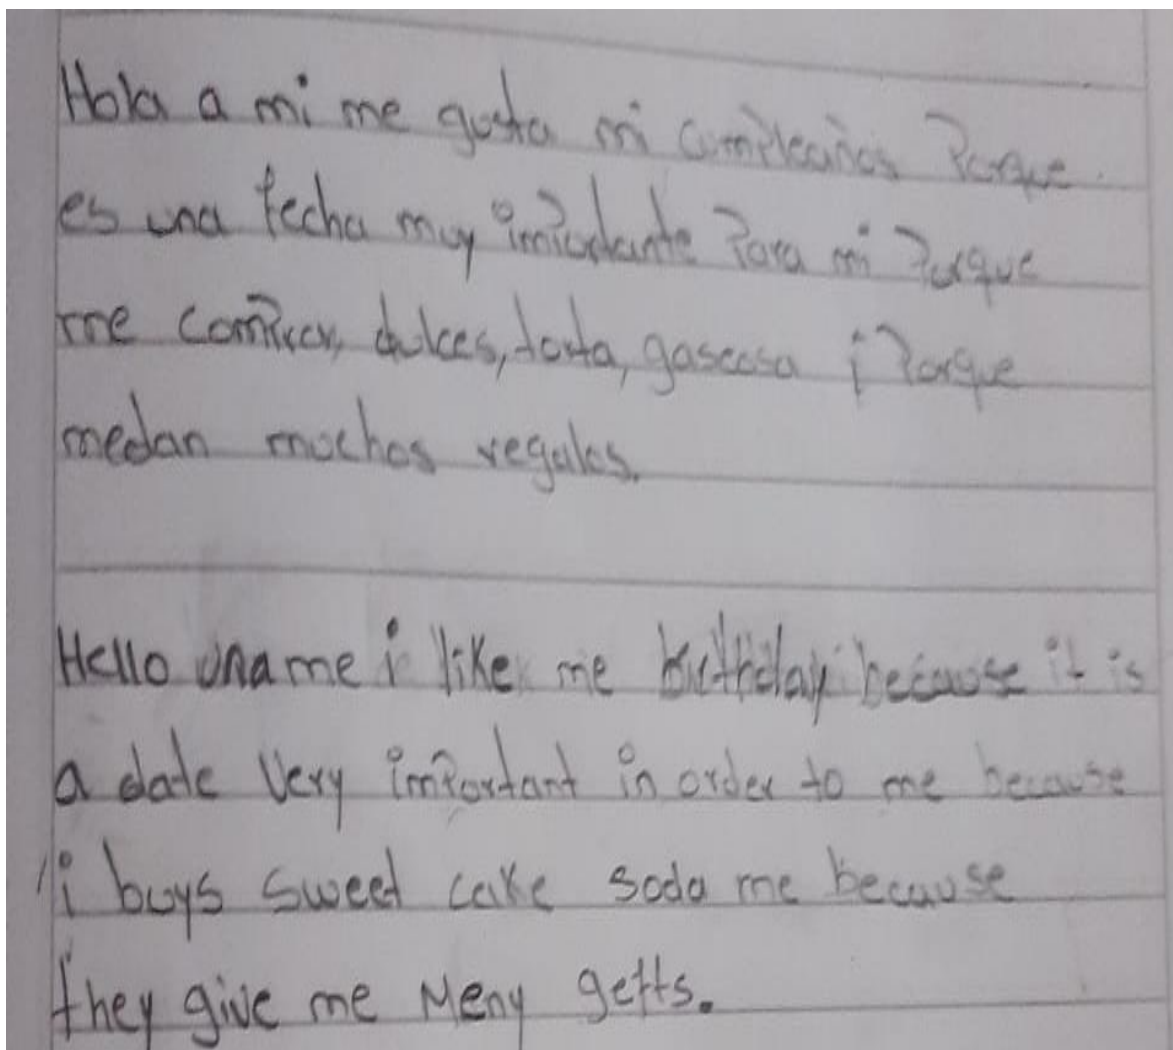 Hola a mi me gusta mi cumpleaños Porque
es una fecha muy importante Para mi Porque
me compran dulces, torta, gaseosa i Porque
medan muchos regalos.
Hello una me i like me birthday because it is
a date Very important in order to me because
i buys sweet cake soda me because
they give me Meny getts.